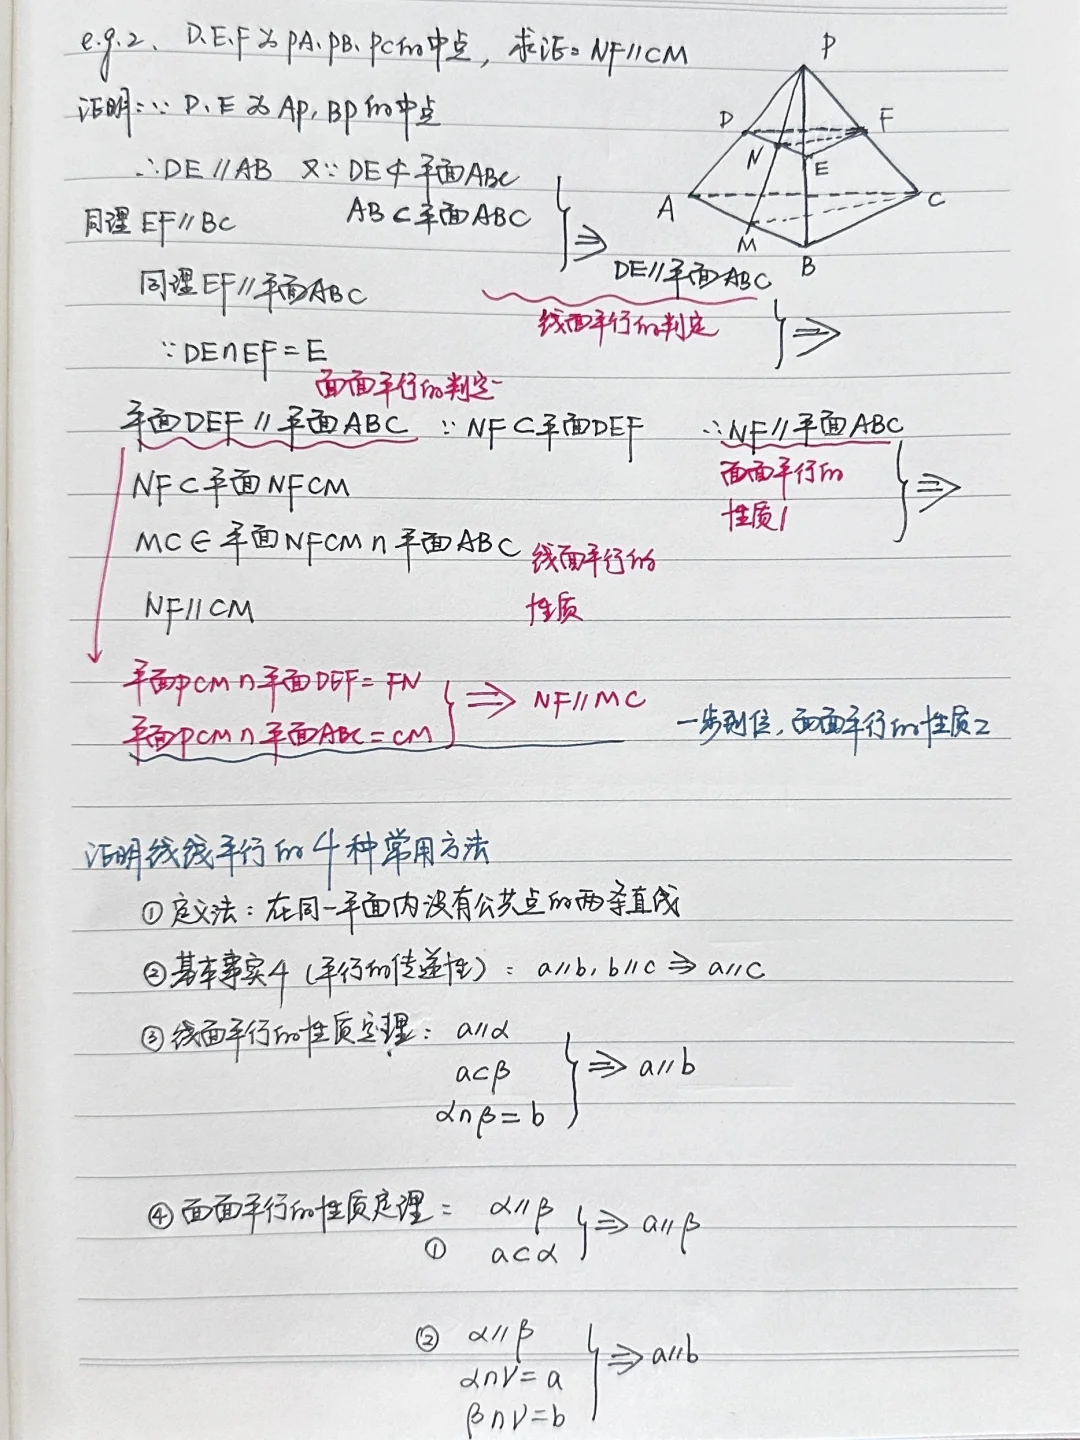 e.g.2、D.E.F为PA.PB.PC的中点，求证：NF//CM
证明：∵ D、E为AP,BP的中点
∴DE//AB 又∵DE⊄平面ABC
同理EF//BC AB⊂平面ABC
⇒ DE//平面ABC
同理EF//平面ABC
线面平行的判定
⇒
∵DE∩EF=E
面面平行的判定
平面DEF//平面ABC ∵NF⊂平面DEF ∴NF//平面ABC
NF⊂平面NFCM
面面平行的
性质1
⇒
MC∈平面NFCM∩平面ABC
线面平行的
性质
NF//CM
平面PCM∩平面DEF=FN
平面PCM∩平面ABC=CM
⇒ NF//MC
一步到位，面面平行的性质2
P
D
F
N
E
A
C
M
B
证明线线平行的4种常用方法
①定义法：在同一平面内没有公共点的两条直线
②基本事实4（平行的传递性）：a//b, b//c ⇒ a//c
③线面平行的性质定理：a//α
a⊂β ⇒ a//b
α∩β=b
④面面平行的性质定理：α//β
① a⊂α ⇒ a//β
② α//β
α∩γ=a ⇒ a//b
β∩γ=b